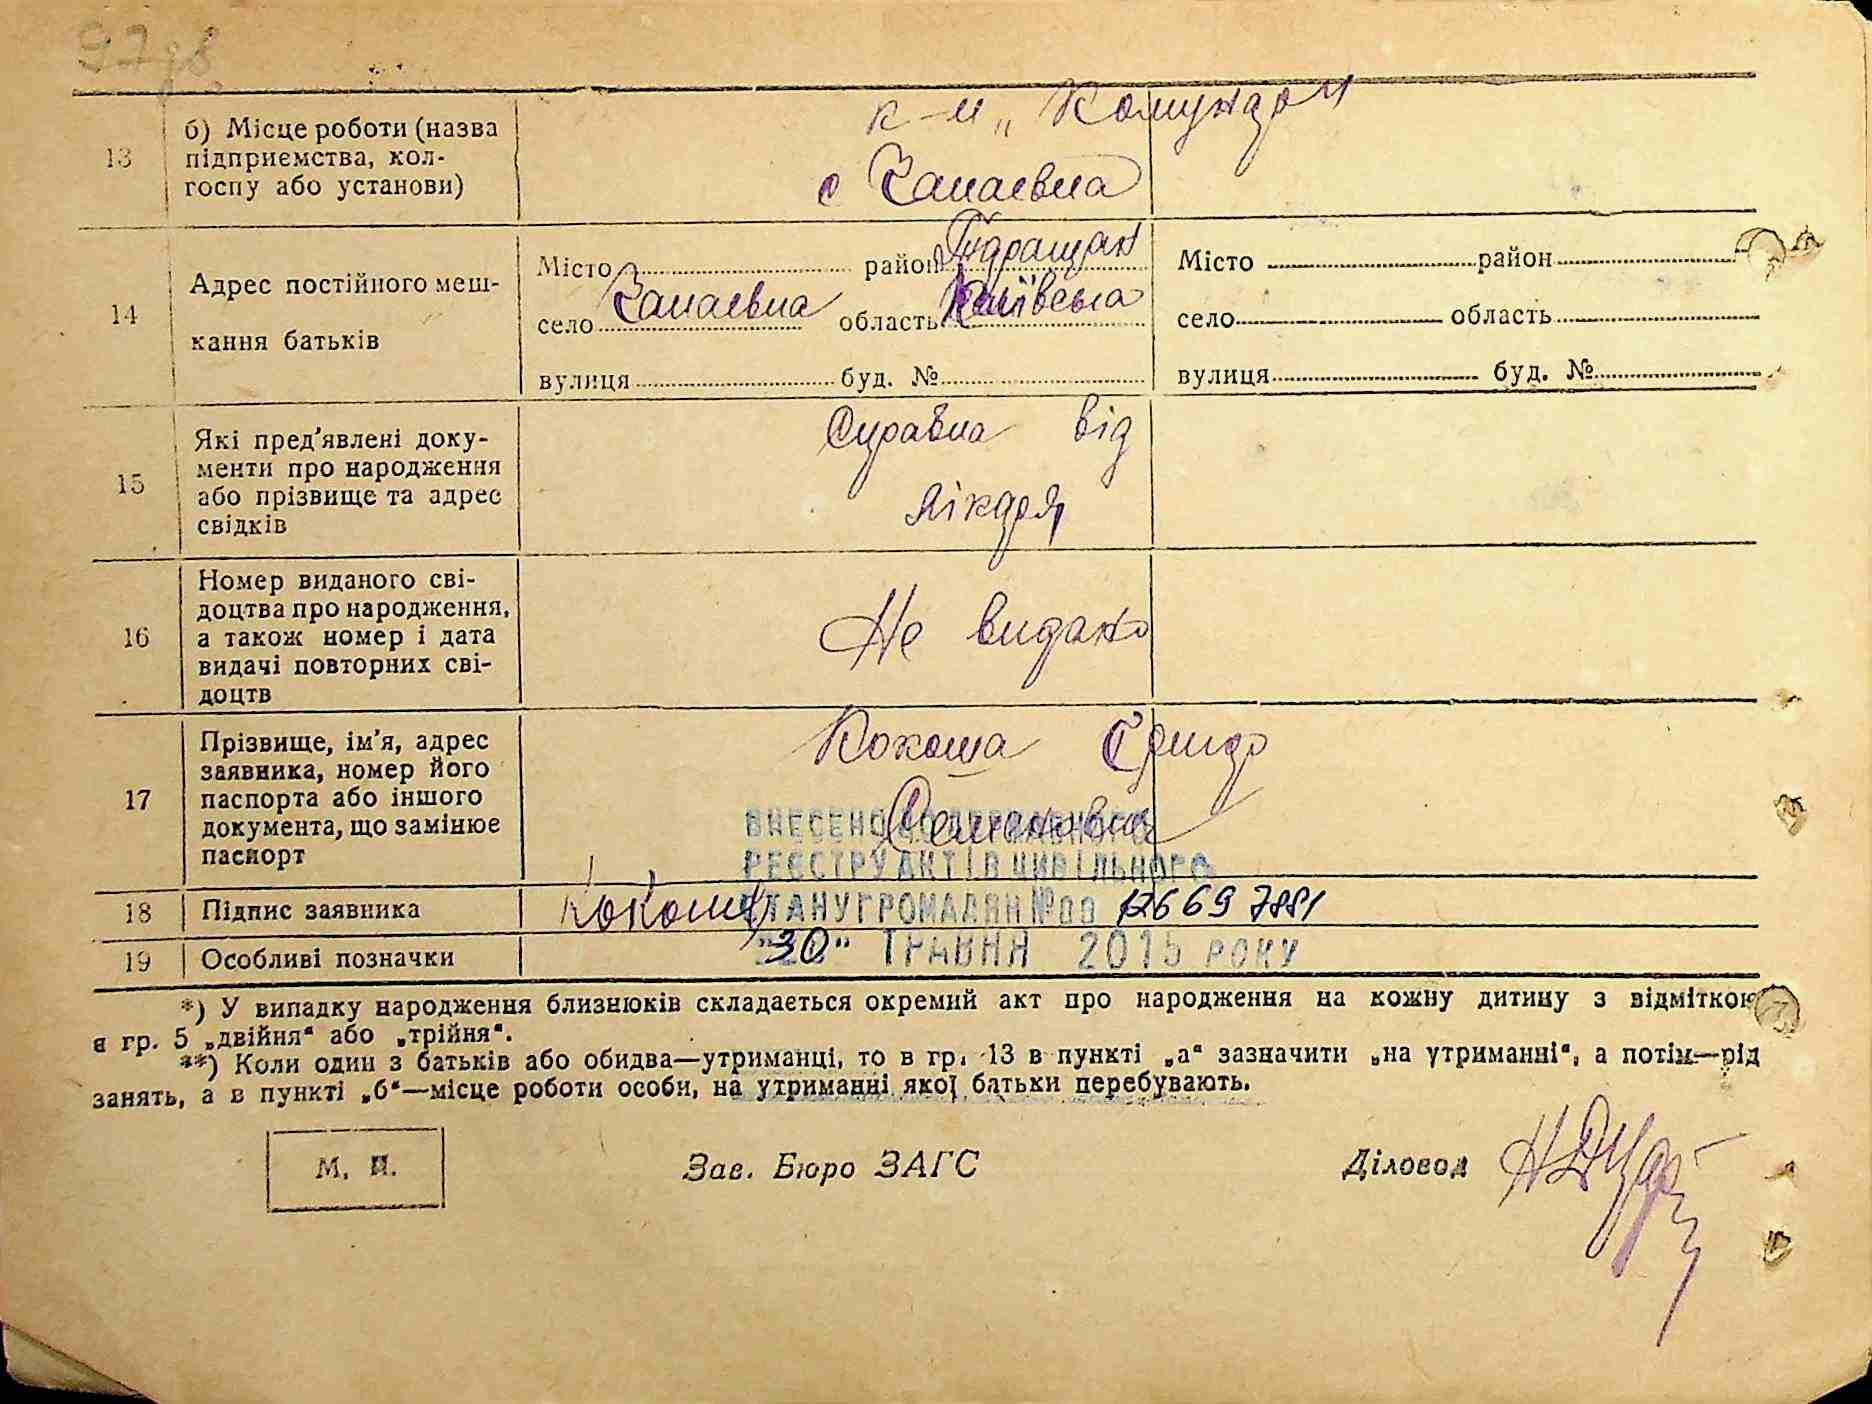 97 зв
к-п „Комунар"
13 б) Місце роботи (назва
підприємства, кол-
госпу або установи)
с Чапаєвка
14 Адрес постійного меш-
кання батьків
Місто район
село Чапаєвка область Київська
вулиця буд. №
Місто район
село область
вулиця буд. №
15 Які пред'явлені доку-
менти про народження
або прізвище та адрес
свідків
Справка від
лікаря
16 Номер виданого сві-
доцтва про народження,
а також номер і дата
видачі повторних сві-
доцтв
Не видано
17 Прізвище, ім'я, адрес
заявника, номер його
паспорта або іншого
документа, що замінює
паспорт
Кокоша
Семенович
ВНЕСЕНО ДО ДЕРЖАВНОГО
РЕЄСТРУ АКТІВ ЦИВІЛЬНОГО
18 Підпис заявника Кокоша
СТАНУ ГРОМАДЯН №00 126697881
19 Особливі позначки
"30" ТРАВНЯ 2015 РОКУ
*) У випадку народження близнюків складається окремий акт про народження на кожну дитину з відміткою
в гр. 5 „двійня" або „трійня".
**) Коли один з батьків або обидва—утриманці, то в гр. 13 в пункті „а" зазначити „на утриманні", а потім—рід
занять, а в пункті „б"—місце роботи особи, на утриманні якої батьки перебувають.
М. П. Зав. Бюро ЗАГС Діловод